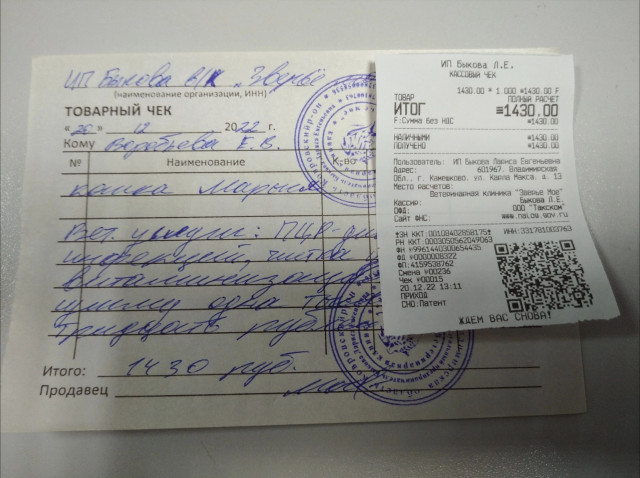 ИП Быкова В/К "Зверьё
(наименование организации, ИНН)
ТОВАРНЫЙ ЧЕК
« 20 » 12 2022 г.
Кому Воробьева Е. В.
№ Наименование К-во
кошка Марыся
Вет. услуги: ПЦР-
инфекций, чистка
витаминизац
сумму одна ты
тридцать рубл
Итого: 1430 руб.
Продавец
ИП Быкова Л.Е.
КАССОВЫЙ ЧЕК
1430.00 * 1.000 =1430.00 F
ТОВАР ПОЛНЫЙ РАСЧЕТ
ИТОГ =1430.00
F:Сумма без НДС =1430.00
НАЛИЧНЫМИ =1430.00
ПОЛУЧЕНО =1430.00
Пользователь: ИП Быкова Лариса Евгеньевна
Адрес: 601967, Владимирская
обл., г. Камешково, ул. Карла Макса, д. 13
Место расчетов:
Ветеринарная клиника "Зверье Мое"
Кассир: Быкова Л.Е.
ОФД: ООО "Такском"
Сайт ФНС: www.nalog.gov.ru
ЗН ККТ:00108402858175 ИНН:331781003763
РН ККТ:0003050562049063
ФН №9961440300654435
ФД №0000008322
ФП:4159538762
Смена №00236
Чек №00015
20.12.22 13:11
ПРИХОД
СНО:Патент
ЖДЕМ ВАС СНОВА!